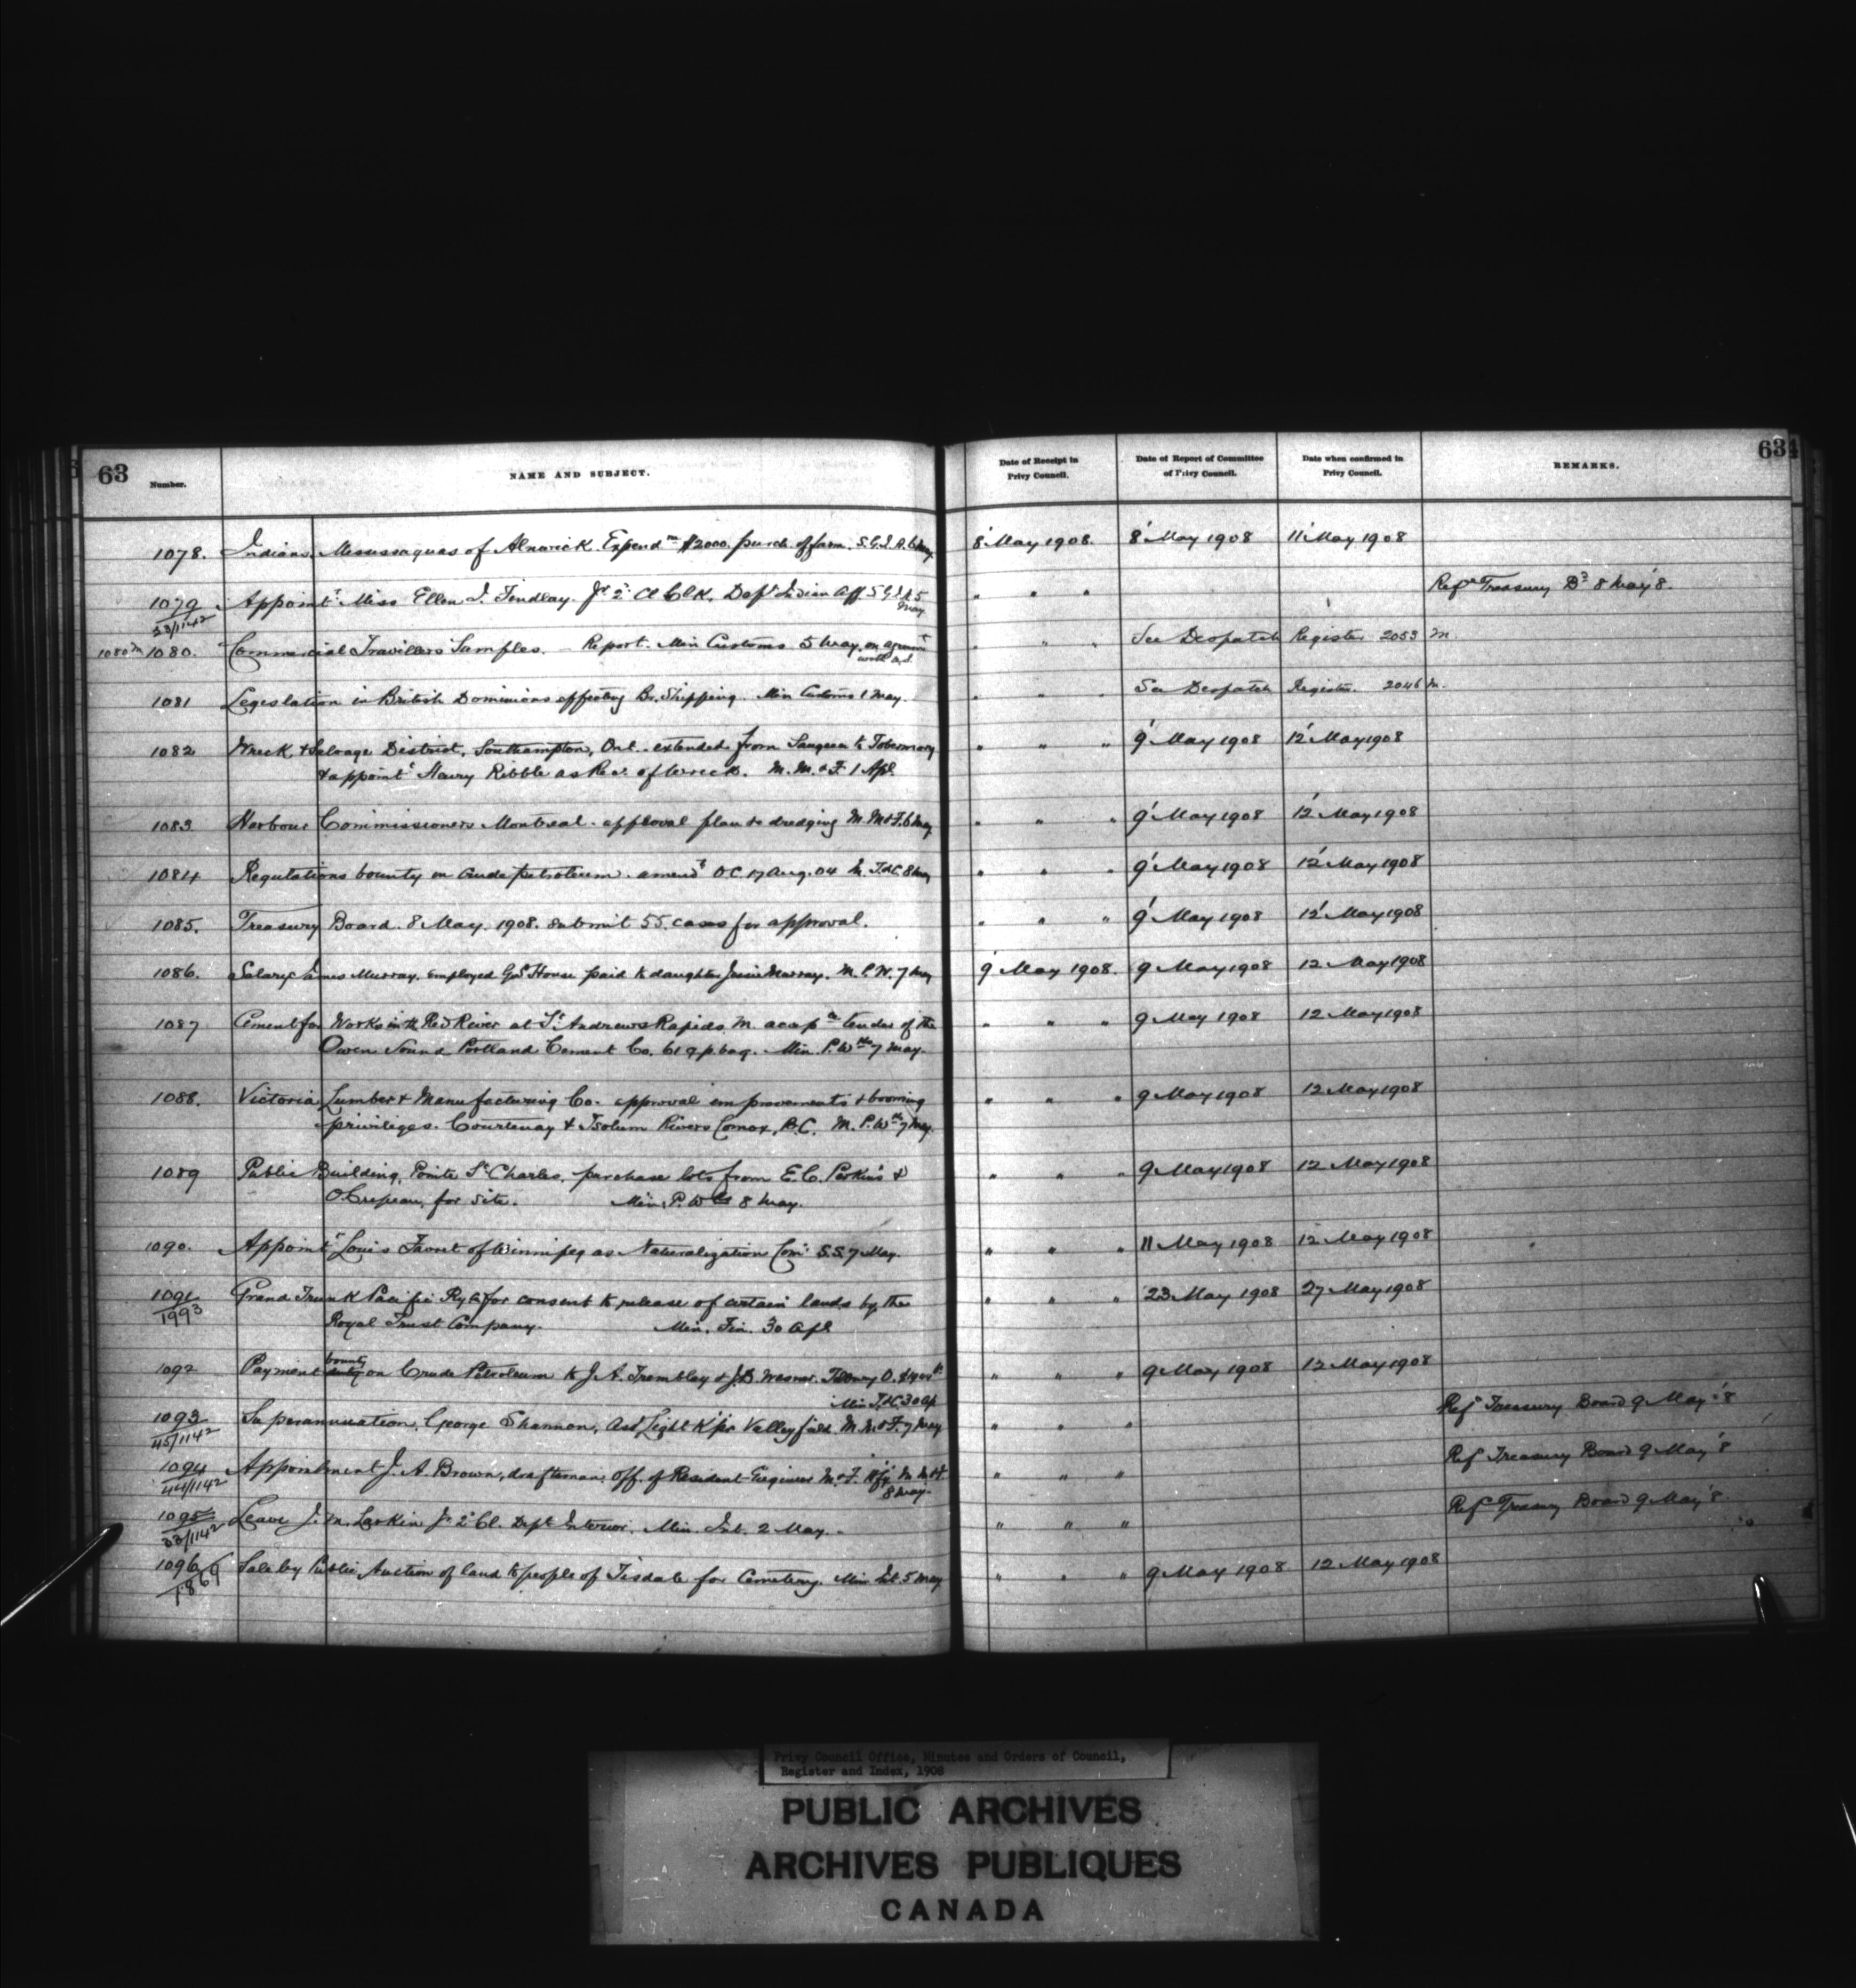 63
634
Number.
NAME AND SUBJECT.
Date of Receipt in Privy Council.
Date of Report of Committee of Privy Council.
Date when confirmed in Privy Council.
REMARKS.
1078. Indians. Mississaguas of Alnwick. Expend re $2000. purch. of farm. S.G.I.A. 6 May 8' May 1908. 8' May 1908 11' May 1908
1079 Appoint t Miss Ellen I. Findlay. Jr 2 Cl Clk. Dept Indian Aff. S G I A 5 " " " Ref Treasury Bd 8 May '8.
33/1142 May
1080 m 1080. Commercial Travellers Samples. Report. Min Customs 5 May, on agreemt " " " See Despatch Register 2053 M.
1081 Legislation in British Dominions affecting Br. Shipping. Min Customs 1 May. " " " See Despatch Register. 2046 M.
1082 Wreck & Salvage District, Southampton, Ont. extended from Saugeen to Tobermory " " " 9' May 1908 12' May 1908
& appoint t Harry Ribble as Rec. of Wreck. M. M. & F. 1 Apl
1083 Harbour Commissioners Montreal. approval plan dredging M. M & F. 6 May " " " 9' May 1908 12' May 1908
1084 Regulations bounty on Crude petroleum. amend t O.C. 17 Aug. 04 M. T. & C. 8 May " " " 9' May 1908 12' May 1908
1085. Treasury Board. 8 May. 1908. submit 55 cases for approval. " " " 9' May 1908 12' May 1908
1086. Salary James Murray. employed Gvt House paid to daughter Jessie Murray. M. P. W. 7 May 9' May 1908. 9 May 1908 12 May 1908
1087 Cement for Works in the Red River at St. Andrews Rapids M. accep ce tender of the " " " 9 May 1908 12 May 1908
Owen Sound Portland Cement Co. 61 9 p. bag. Min. P. Wks 7 May.
1088. Victoria Lumber & Manufacturing Co. approval improvements & booming " " " 9 May 1908 12 May 1908
privileges. Courtenay & Tsolum Rivers Comox, B.C. M. P. Wks 7 May.
1089 Public Building, Pointe St Charles, purchase lots from E. C. Perkins & " " " 9 May 1908 12 May 1908
O Crepeau, for site. Min. P. Wks 8 May.
1090. Appoint t Louis Favret of Winnipeg as Naturalization Com. S.S. 7 May. " " " 11 May 1908 12 May 1908
1091 Grand Trunk Pacific Ry Co for consent to release of certain lands by the " " " 23 May 1908 27 May 1908
1993 Royal Trust Company. Min. Fin. 30 Apl
1092 Payment bounty on Crude Petroleum to J. A. Trembley & J. D. " " " 9 May 1908 12 May 1908
Min T. & C. 30 Ap
1093 Superannuation, George Shannon, Asst Light K'pr Valleyfield. M. M. & F. 7 May " " " Ref Treasury Board 9 May '8
45/1142
1094 Appointment J. A. Brown, draftsman off. of Resident Engineer M. & F. M. M & F. " " " Ref Treasury Board 9 May '8
44/1142 8 May.
1095 Leave J. M. Larkin Jr 2 Cl. Dept Interior. Min. Int. 2 May. " " " Ref Treasury Board 9 May '8
33/1142
1096 Sale by Public Auction of land to people of Tisdale for Cemetery. Min Int. 5 May " " " 9 May 1908 12 May 1908
1869
Privy Council Office, Minutes and Orders of Council,
Register and Index, 1908
PUBLIC ARCHIVES
ARCHIVES PUBLIQUES
CANADA